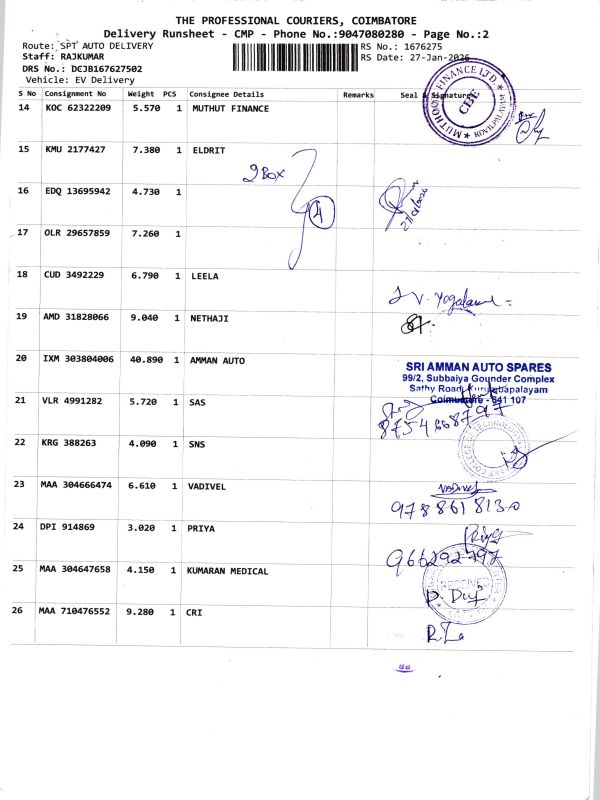 THE PROFESSIONAL COURIERS, COIMBATORE
Delivery Runsheet - CMP - Phone No.:9047080280 - Page No.:2
Route: SPT AUTO DELIVERY
RS No.: 1676275
Staff: RAJKUMAR
RS Date: 27-Jan-2026
DRS No.: DCJB167627502
Vehicle: EV Delivery
S No Consignment No Weight PCS Consignee Details Remarks Seal & Signature
14 KOC 62322209 5.570 1 MUTHUT FINANCE
MUTHOOT FINANCE LTD.
CBE
15 KMU 2177427 7.380 1 ELDRIT
2 Box
16 EDQ 13695942 4.730 1
4
27/01/2026
17 OLR 29657859 7.260 1
18 CUD 3492229 6.790 1 LEELA
V. Yogalaxmi
19 AMD 31828066 9.040 1 NETHAJI
20 IXM 303804006 40.890 1 AMMAN AUTO
SRI AMMAN AUTO SPARES
99/2, Subbaiya Gounder Complex
Sathy Road, Kurumbapalayam
Coimbatore - 641 107
21 VLR 4991282 5.720 1 SAS
8754668797
22 KRG 388263 4.090 1 SNS
23 MAA 304666474 6.610 1 VADIVEL
VADIVEL
9788618130
24 DPI 914869 3.020 1 PRIYA
Priya
966292797
25 MAA 304647658 4.150 1 KUMARAN MEDICAL
RECEIVED
26 MAA 710476552 9.280 1 CRI